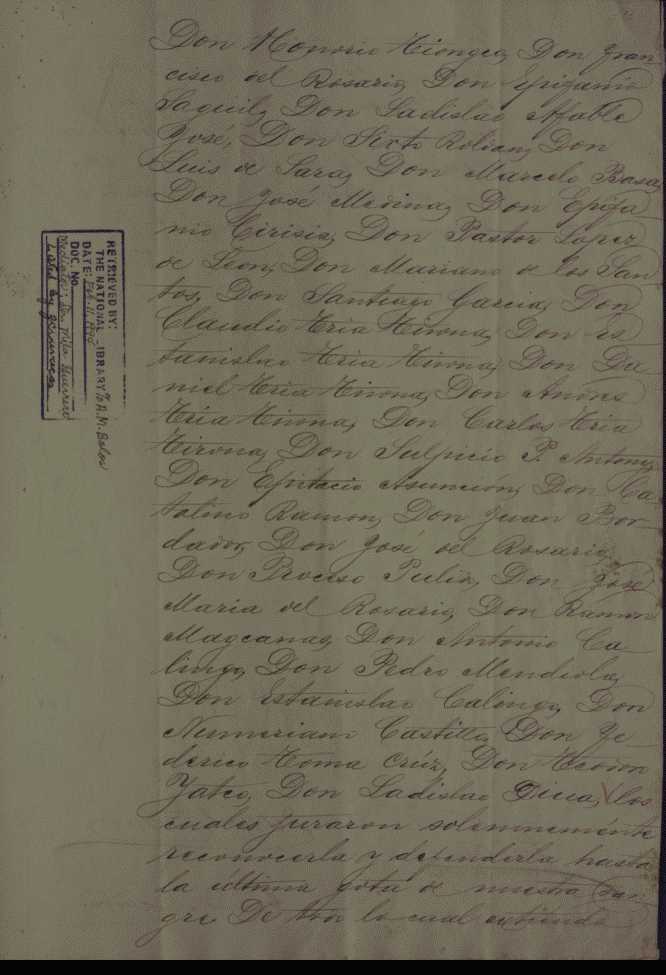 Don Honorio Tiongco, Don Fran-
cisco del Rosario, Don Epifanio
Saguil, Don Ladislao Affable
José, Don Sixto Roldan, Don
Luis de Lara, Don Marcelo Basa,
Don José Medina, Don Epifa
nio Cirisia, Don Pastor Lopez
de Leon, Don Mariano de los San
tos, Don Santiago Garcia, Don
Claudio Tria Tirona, Don Es
tanislao Tria Tirona, Don Da
niel Tria Tirona, Don Andres
Tria Tirona, Don Carlos Tria
Tirona, Don Sulpicio P. Antony,
Don Epitacio Asunción, Don Ca
talino Ramon, Don Juan Bor-
dador, Don José del Rosario,
Don Proceso Pulido, Don José
Maria del Rosario, Don Ramon
Magcanas, Don Antonio Ca
lingo, Don Pedro Mendiola,
Don Estanislao Calingo, Don
Numeriano Castillo, Don Fe
derico Toma Crúz, Don Teodoro
Yatco, Don Ladislao Diua, los
cuales juraron solemnemente
reconocerla y defenderla hasta
la última gota de nuestra San
gre De todo lo cual extiendo
RETRIEVED BY:
THE NATIONAL LIBRARY
DATE: Feb. 11, 
DOC. No.